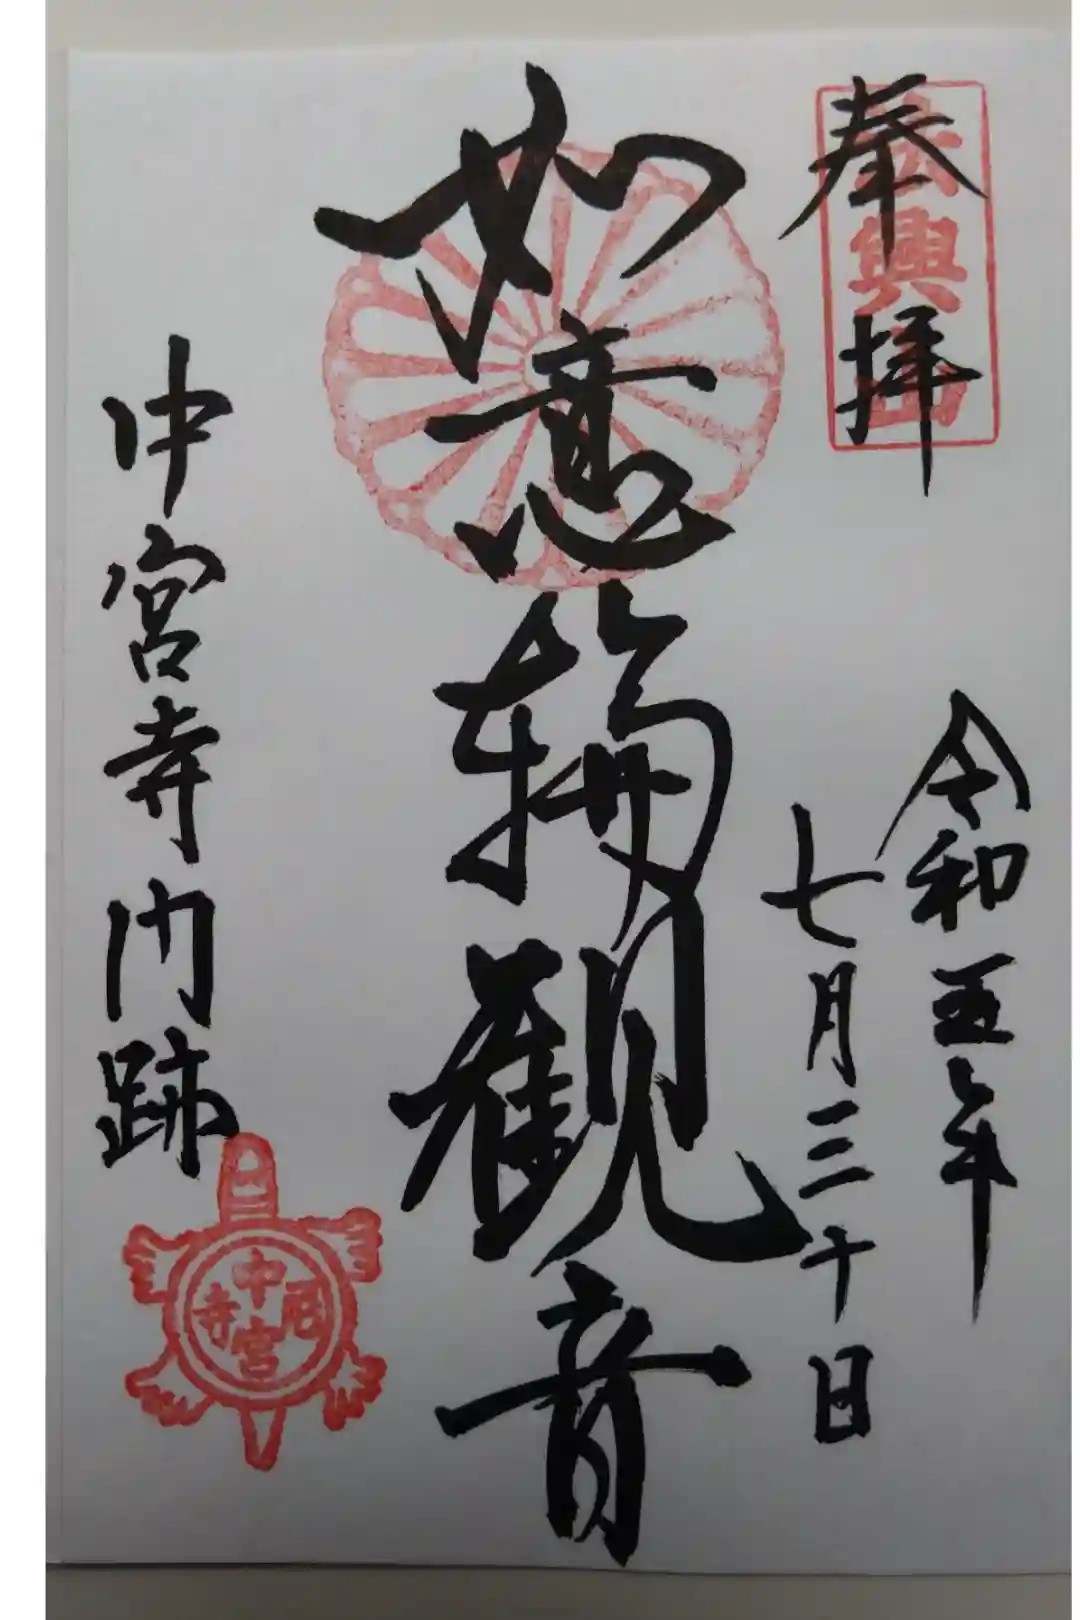 奉拝
法興山
令和五年
七月三十日
如意輪観音
中宮寺門跡
中宮
尼寺